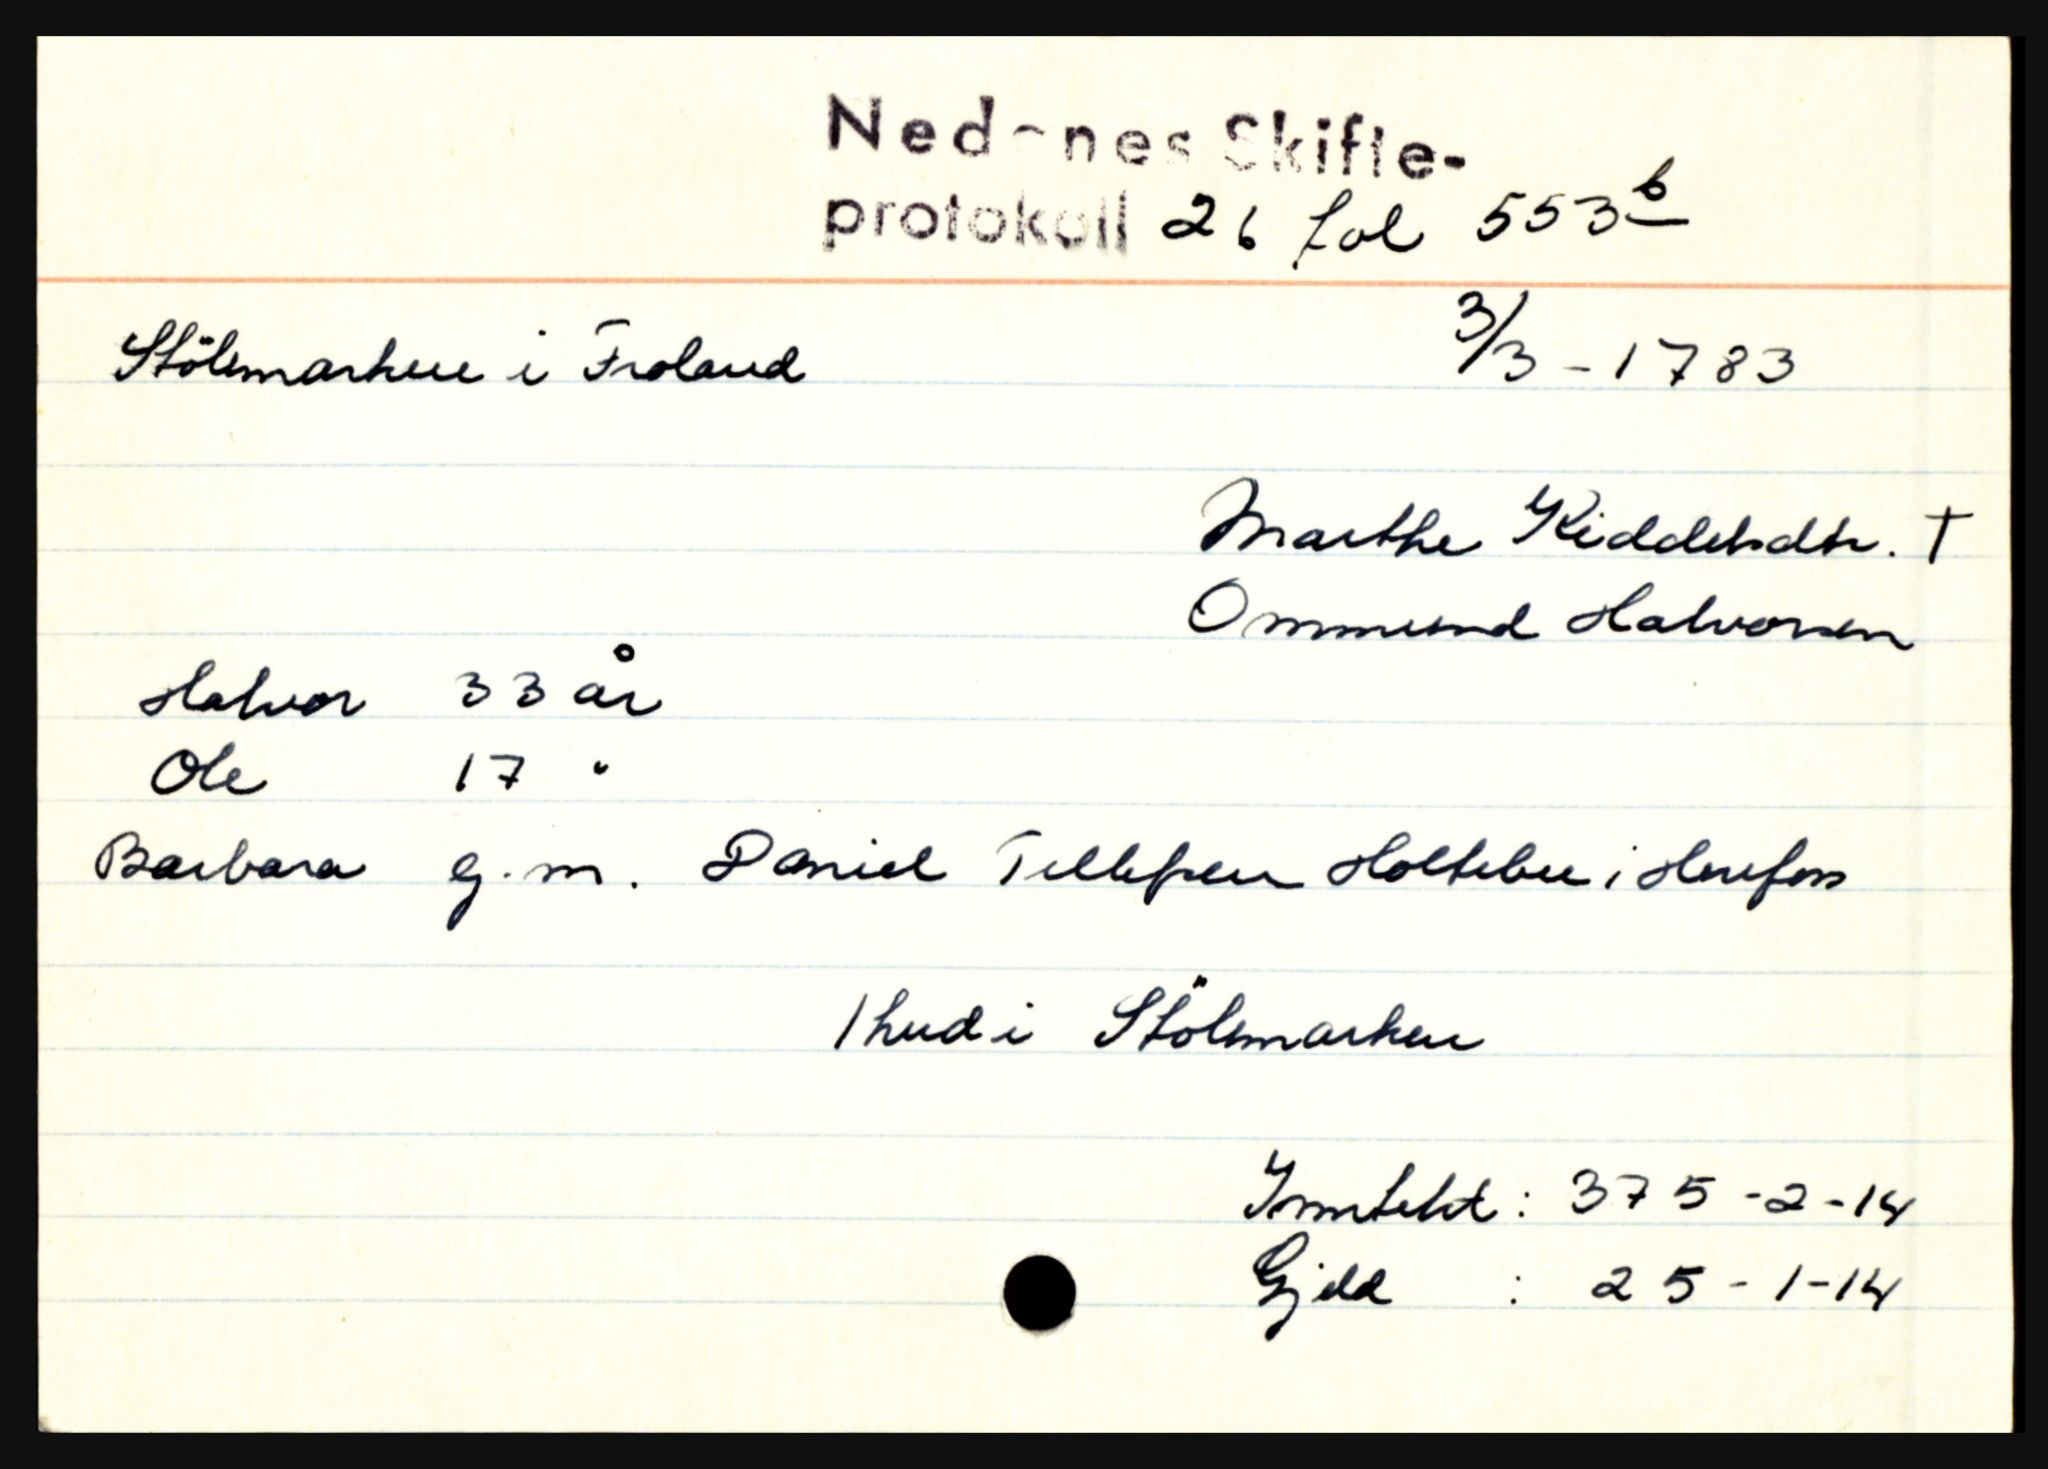 Nedenes Skifte-
protokoll 26 fol 553 b
Stölsmarken i Froland 3/3 - 1783
Marthe Kiddelsdtr. †
Ommund Halvorsen
Halvor 33 år
Ole 17 "
Barbara g.m. Daniel Tellefsen Holteben i Herefoss
1 hud i Stölsmarken
Inntekt : 375 - 2 - 14
Gjeld : 25 - 1 - 14